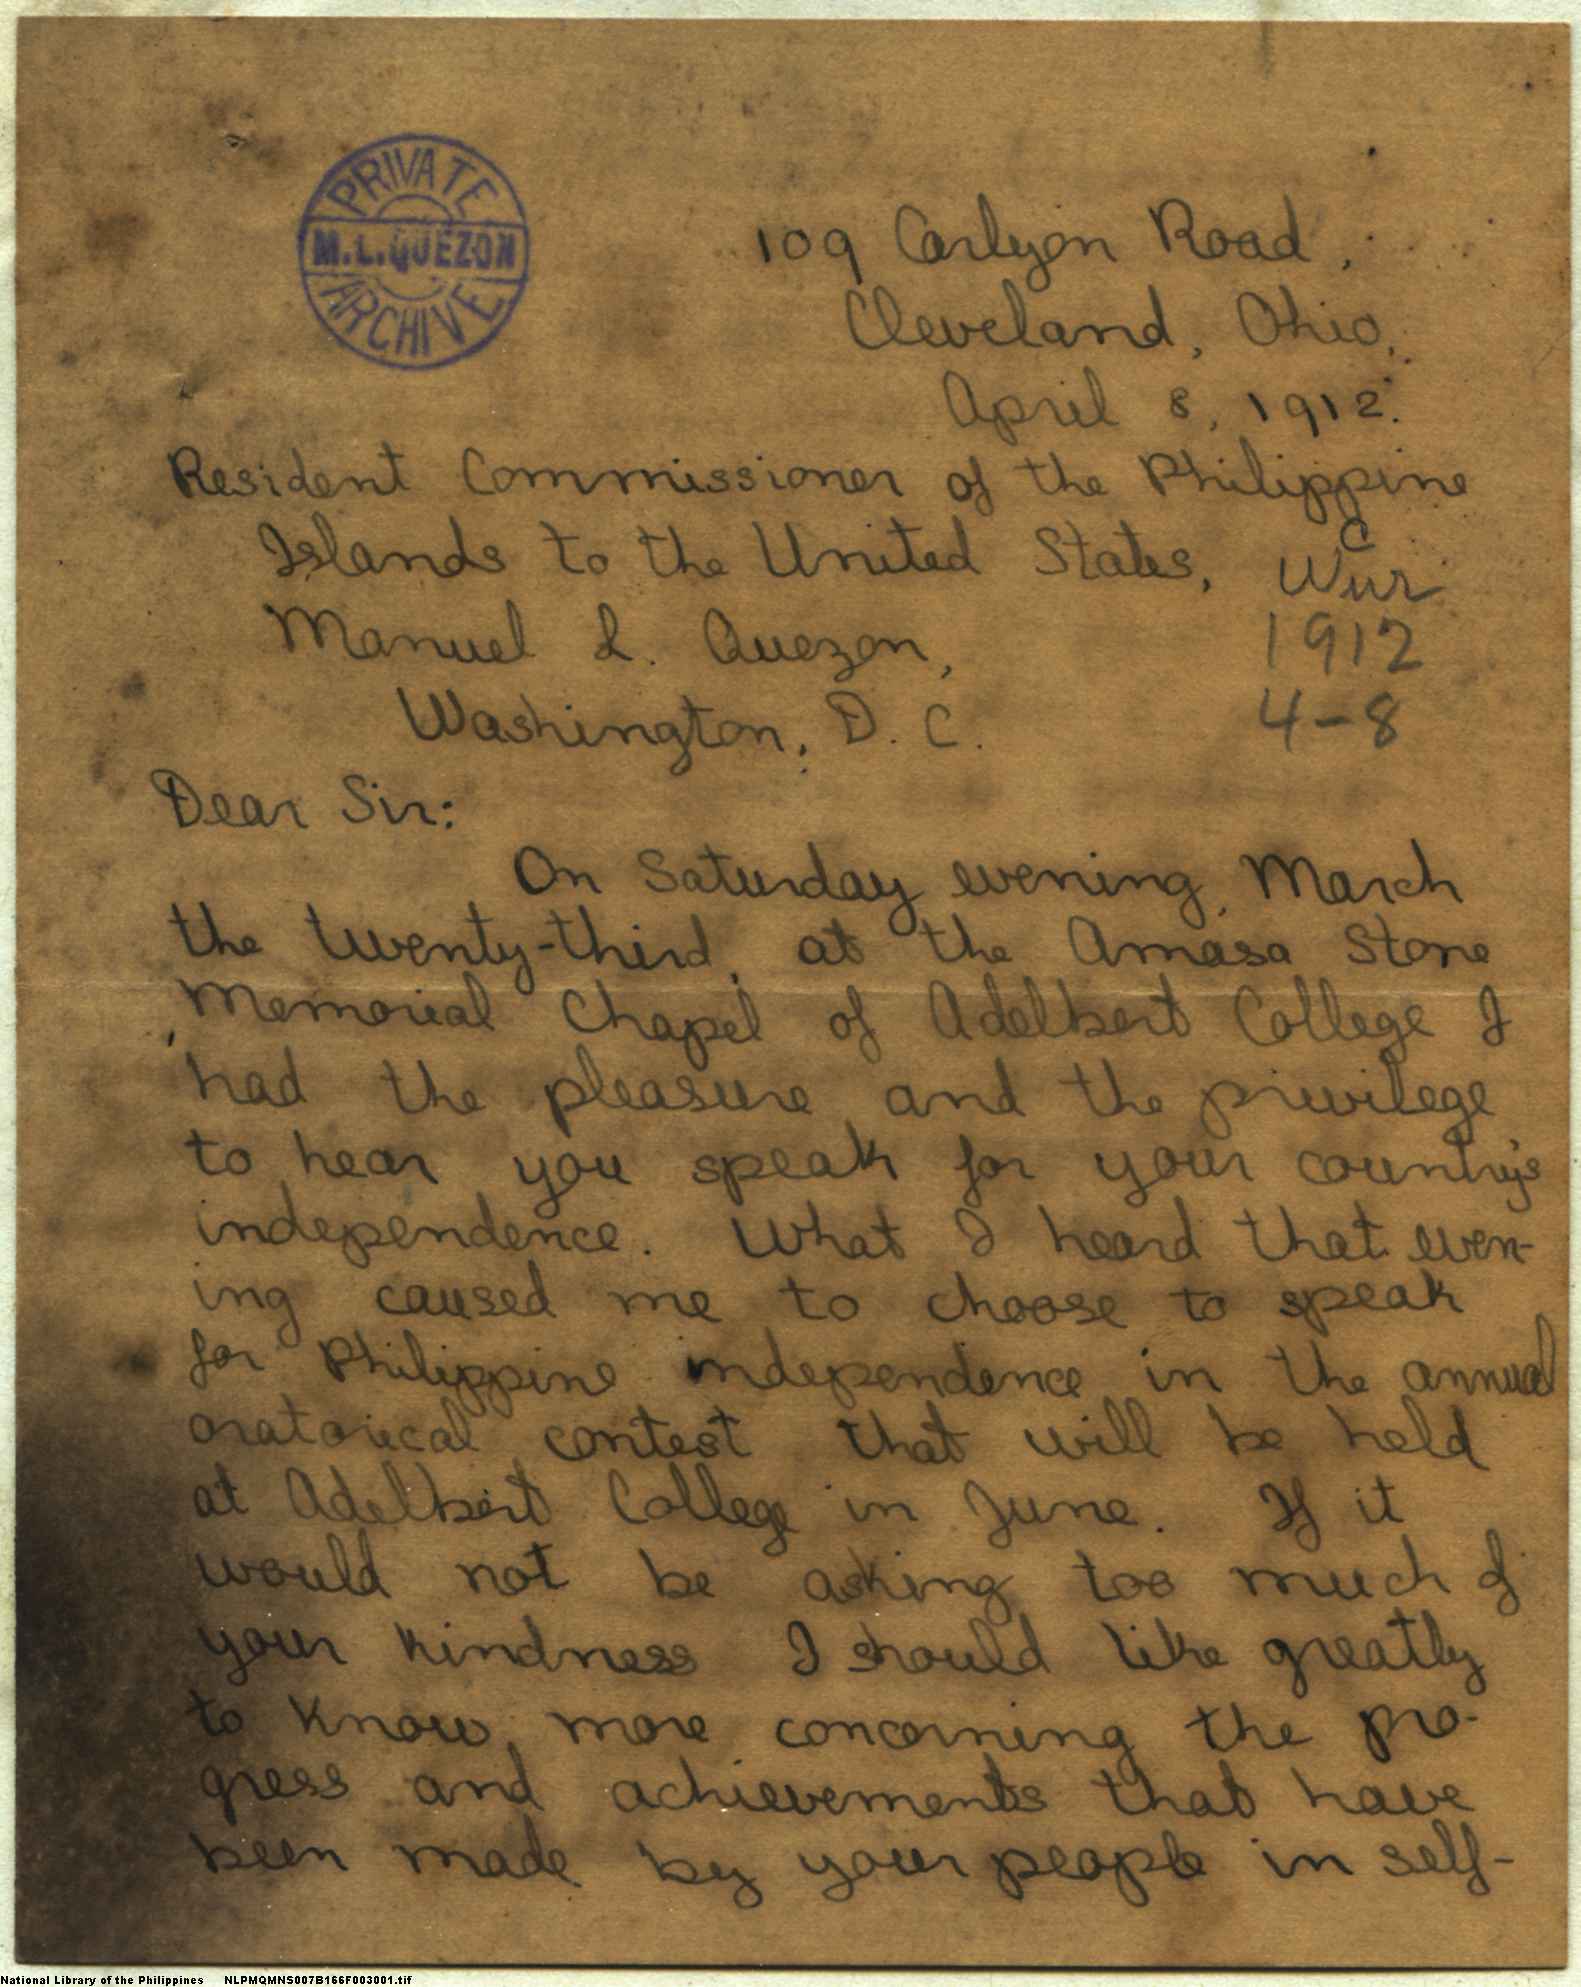 PRIVATE
M.L.QUEZON
ARCHIVE
109 Carlyon Road,
Cleveland, Ohio,
April 8, 1912.
Resident Commissioner of the Philippine
Islands to the United States,
C
Manuel L. Quezon,
1912
Washington, D. C.
4-8
Dear Sir:
On Saturday evening, March
the twenty-third, at the Amasa Stone
Memorial Chapel of Adelbert College I
had the pleasure and the privilege
to hear you speak for your country's
independence. What I heard that even-
ing caused me to choose to speak
for Philippine independence in the annual
oratorical contest that will be held
at Adelbert College in June. If it
would not be asking too much of
your kindness I should like greatly
to know more concerning the pro-
gress and achievements that have
been made by your people in self-
National Library of the Philippines NLPMQMNS007B166F003001.tif